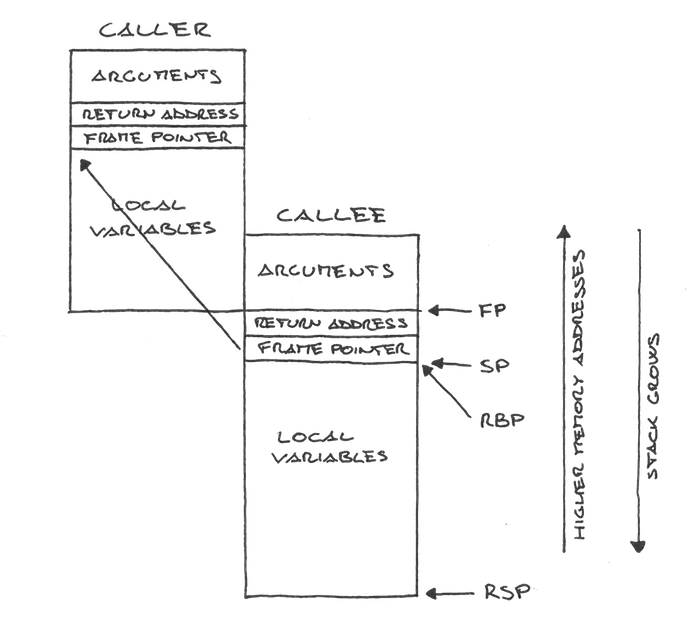 CALLER
ARGUMENTS
RETURN ADDRESS
FRAME POINTER
LOCAL
VARIABLES
CALLEE
ARGUMENTS
RETURN ADDRESS
FRAME POINTER
LOCAL
VARIABLES
FP
SP
RBP
RSP
HIGHER MEMORY ADDRESSES
STACK GROWS